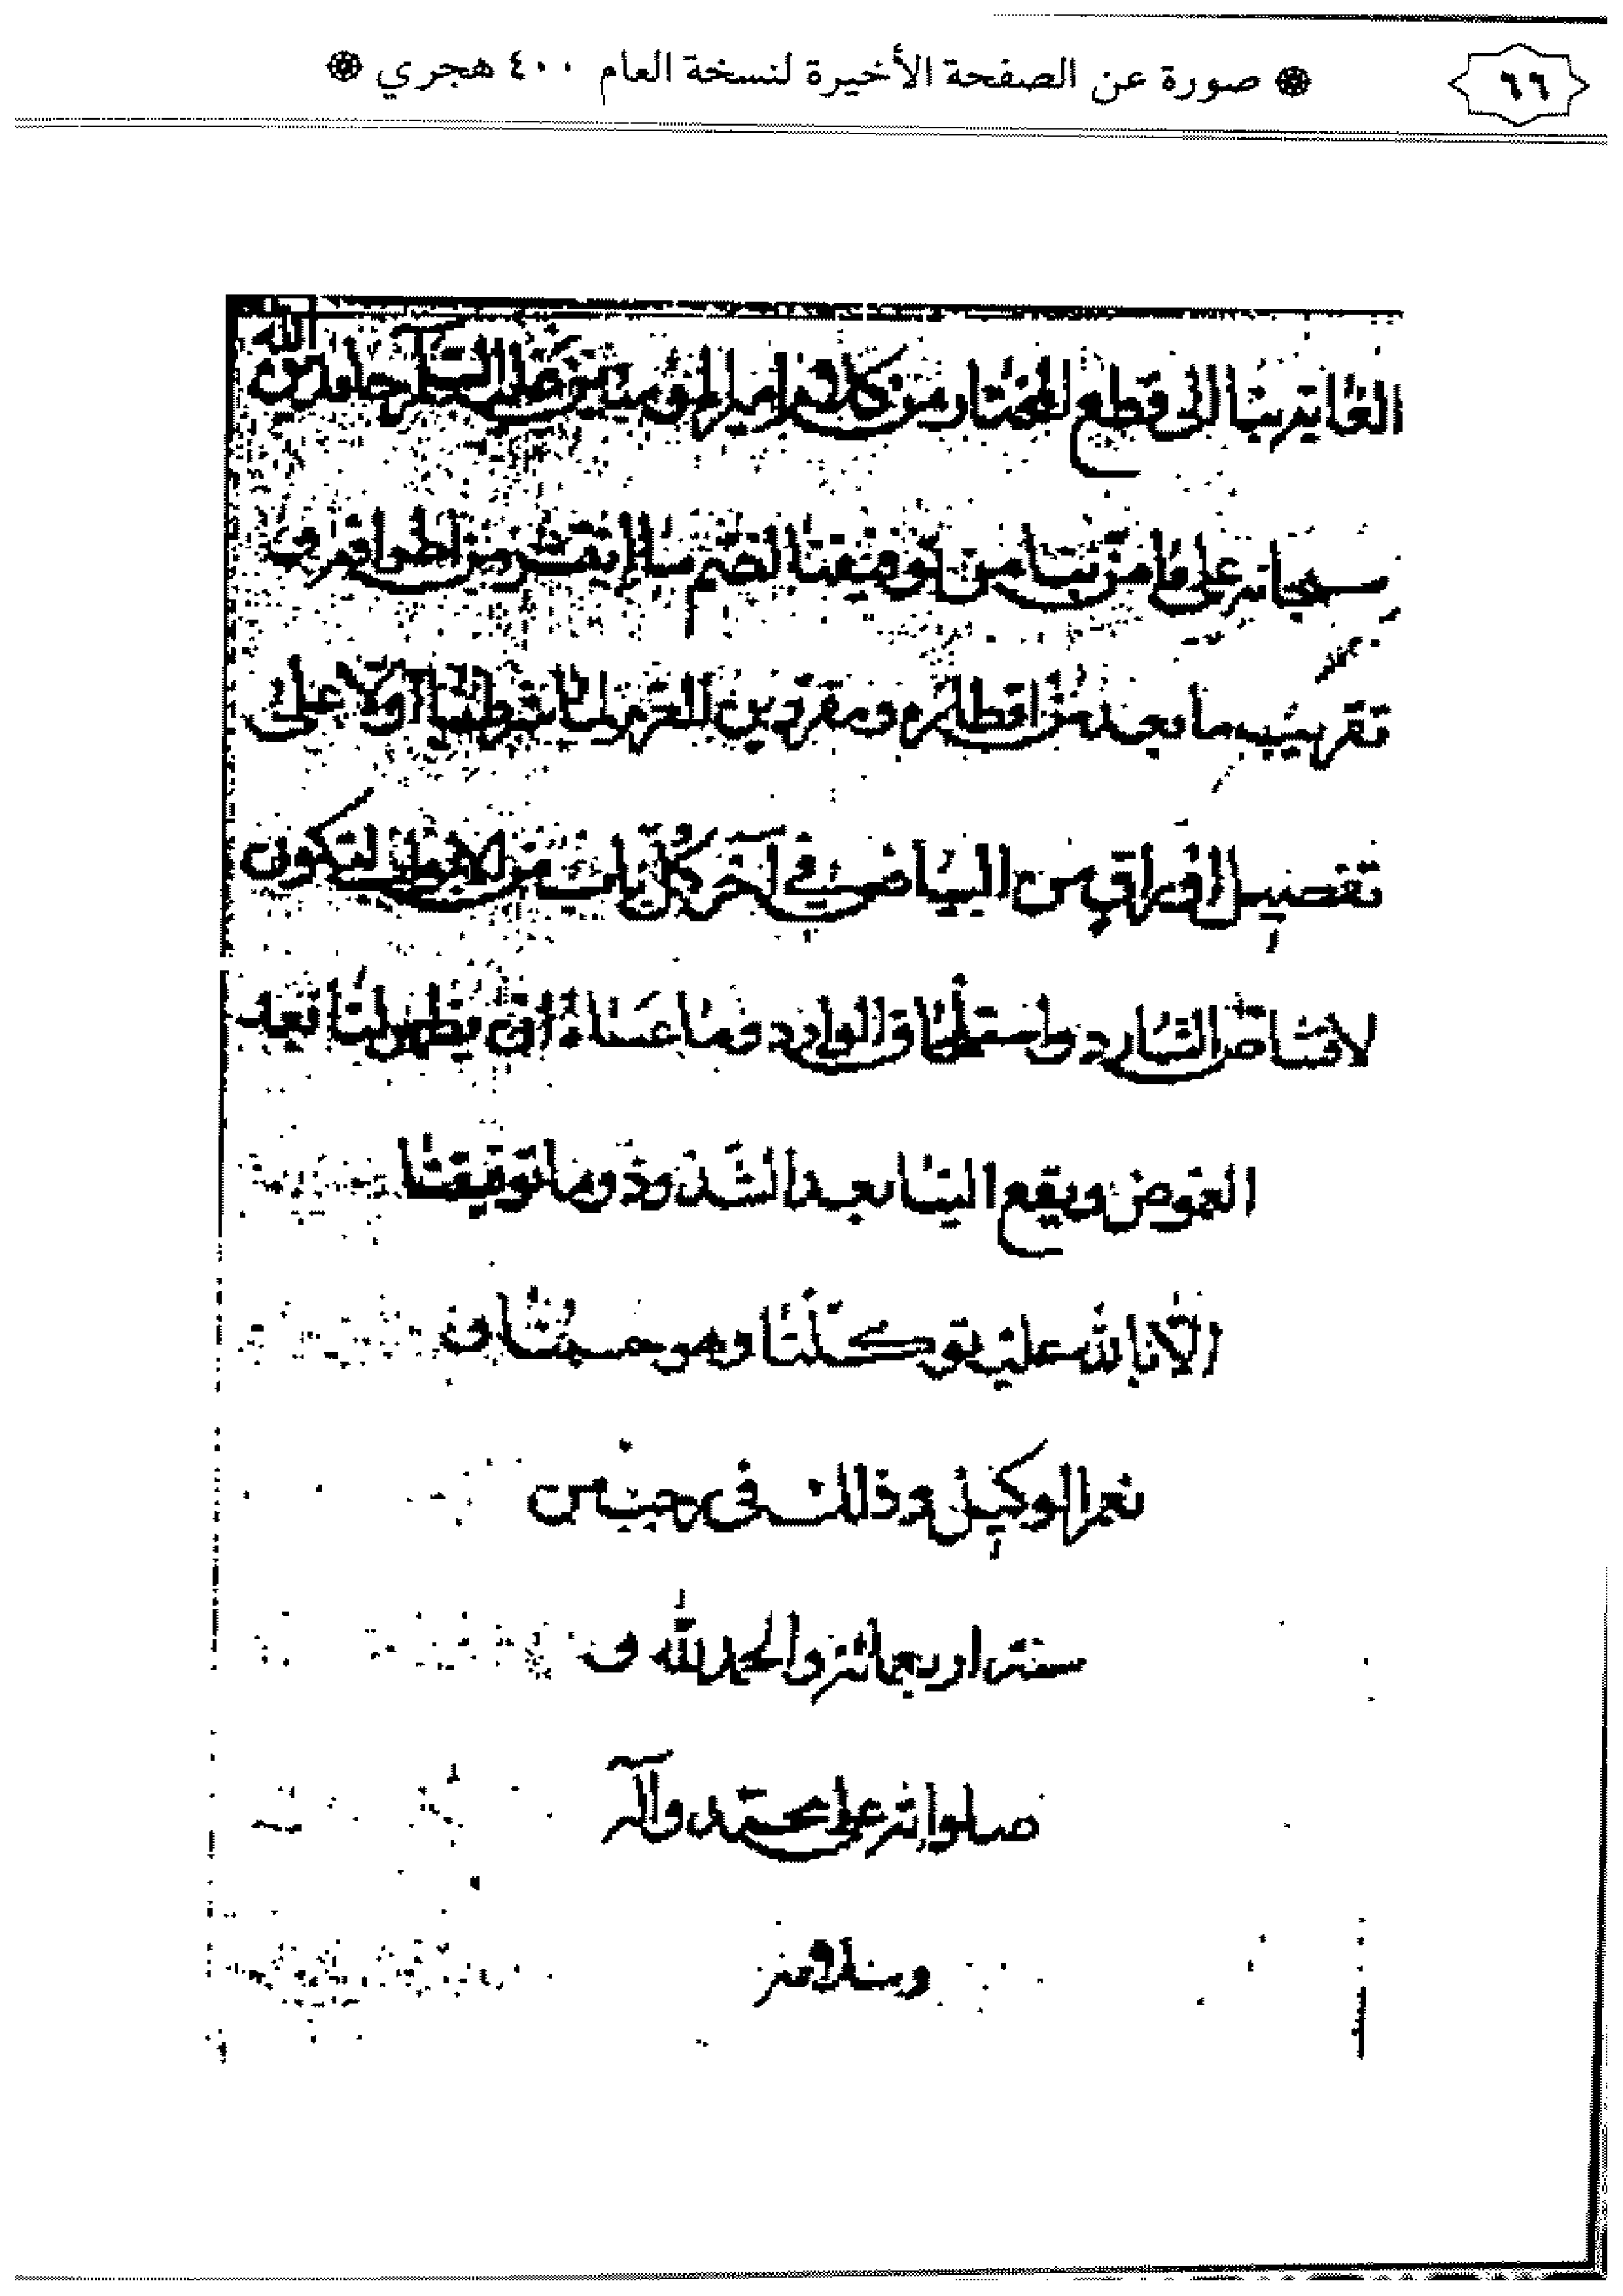 ٦٦
صورة عن الصفحة الأخيرة لنسخة العام ٤٠٠ هجري
الغاية بنا الى قطع المختار من كلام امير المؤمنين عليه السلم حامدين الله
سبحانه على ما من به من توفيقنا لضم ما انتشر من اطرافه و
تقريب ما بعد من اقطاره ومقررين العزم كما شرطنا اولا على
تفضيل اوراق من البياض في آخر كل باب من الابواب لتكون
لاقتناص الشارد واستلحاق الوارد وما عساه ان يظهر لنا بعد
الغموض ويقع الينا بعد الشذوذ وما توفيقنا
الا بالله عليه توكلنا وهو حسبنا و
نعم الوكيل وذلك في رجب من
سنة اربعمائة والحمد لله و
صلواته على محمد وآله
وسلامه